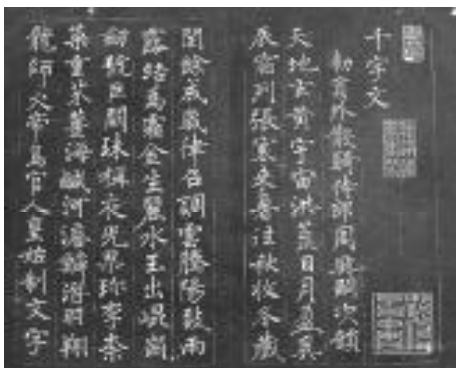 千字文
勅員外散騎侍郎周興嗣次韻
天地玄黃宇宙洪荒日月盈昃
辰宿列張寒來暑往秋收冬藏
閏餘成歲律召調雲騰陽致雨
露結為霜金生麗水玉出崐崗
劒號巨闕珠稱夜光果珍李柰
菜重芥薑海鹹河淡鱗潛羽翔
龍師火帝鳥官人皇始制文字